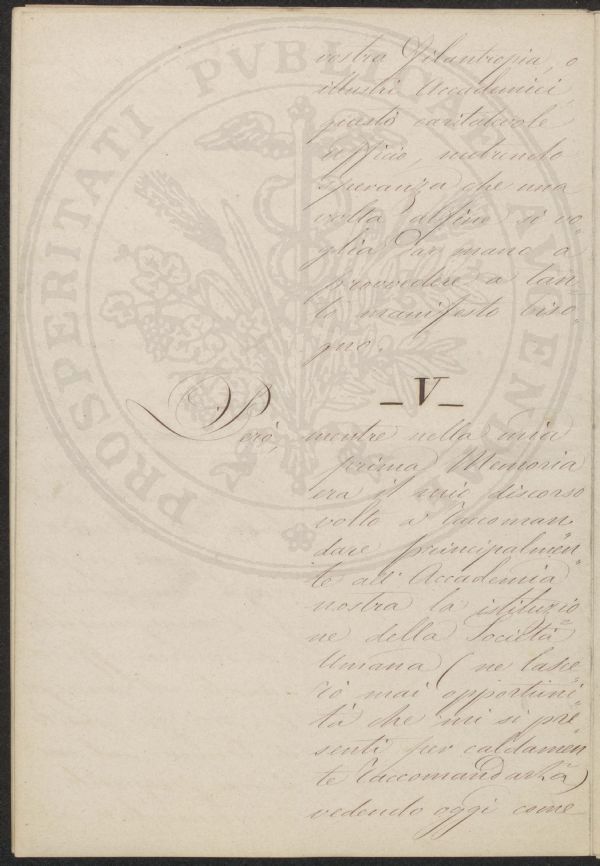 PROSPERITATI PVBLICAE AVGENDAE
vostra Filantropia, o
illustri Accademici,
questo caritatevole
ufficio, nutrendo
speranza che una
volta alfine si vo=
glia dar mano a
provvedere a tan
to manifesto biso=
gno.
— V —
Però, mentre nella mia
prima Memoria
era il mio discorso
volto a raccoman=
dare principalmen=
te all' Accademia
nostra la istituzio=
ne della Società
Umana (ne lasce=
rò mai opportuni=
tà che mi si pre=
senti per caldamen
te raccomandarla)
vedendo oggi come